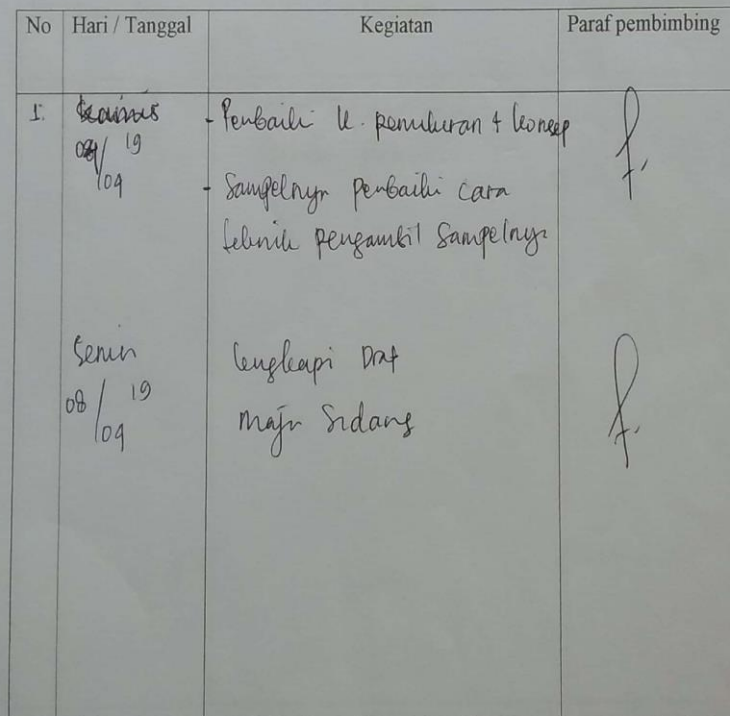 No Hari / Tanggal Kegiatan Paraf pembimbing
1. Kamis - Perbaiki k. pemikiran + konsep
19
/04
- Sampelnya perbaiki cara
teknik pengambil Sampelnya
Senin lengkapi Draf
08 / 19
/04
maju Sidang